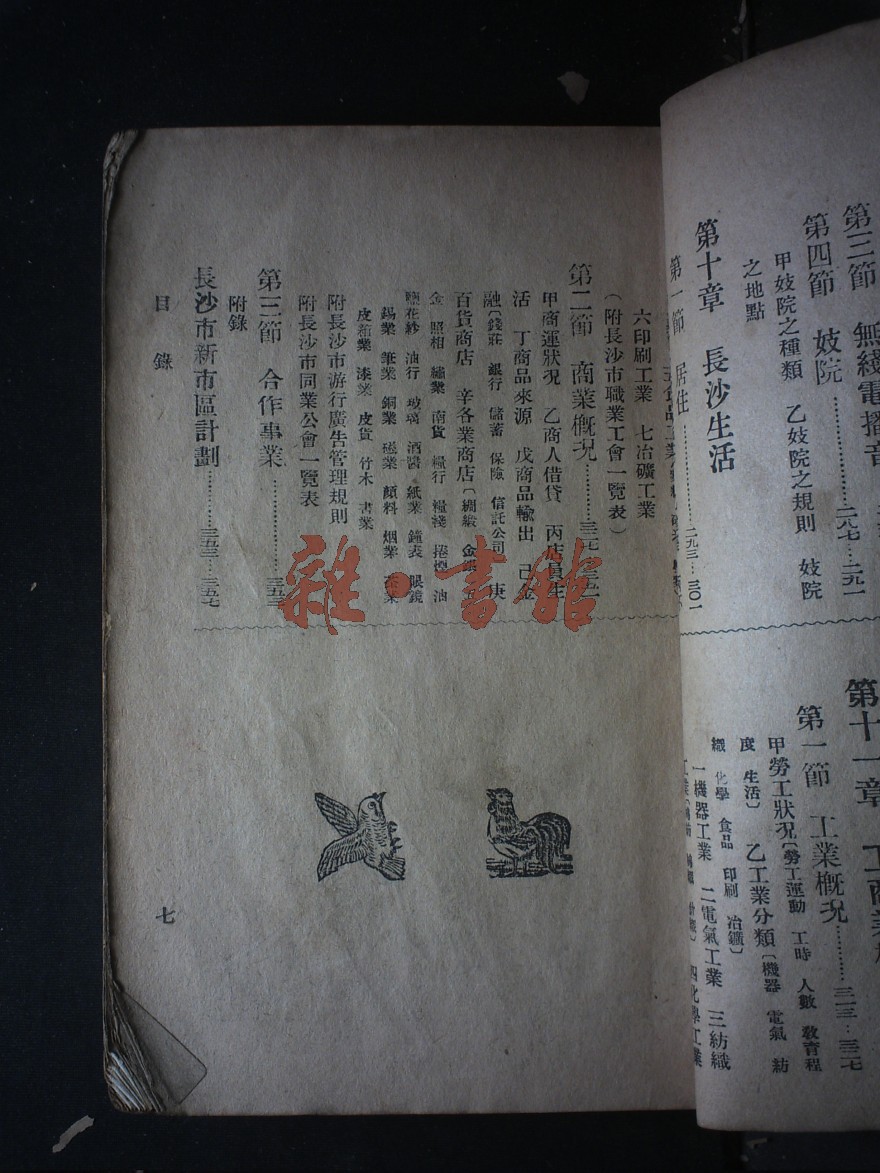 第三節 無綫電播音
第四節 妓院……二九七—二九一
甲妓院之種類 乙妓院之規則 妓院
之地點
第十章 長沙生活
第一節 居住……二九三…三〇一
第十一章 工商業
第一節 工業概況……三一三…三二七
甲勞工狀況〔勞工運動 工時 人數 教育程
度 生活〕 乙工業分類〔機器 電氣 紡
織 化學 食品 印刷 冶鑛〕
一機器工業 二電氣工業 三紡織
四化學工業
六印刷工業 七冶礦工業
(附長沙市職業工會一覽表)
第二節 商業概況
甲商運狀況 乙商人借貸 丙店員生
活 丁商品來源 戊商品輸出 己金
融〔錢莊 銀行 儲蓄 保險 信託公司 庚
百貨商店 辛各業商店〔綢緞 金銀
金 照相 繡業 南貨 糧行 糧棧 捲煙 油
鹽花紗 油行 玻璃 酒醬 紙業 鐘表 眼鏡
錫業 筆業 銅業 磁業 顏料 烟業 茶業
皮箱業 漆業 皮貨 竹木 書業
附長沙市游行廣告管理規則
附長沙市同業公會一覽表
第三節 合作事業……三五三
附錄
長沙市新市區計劃……三五三…三五七
目錄
七
雜·書館